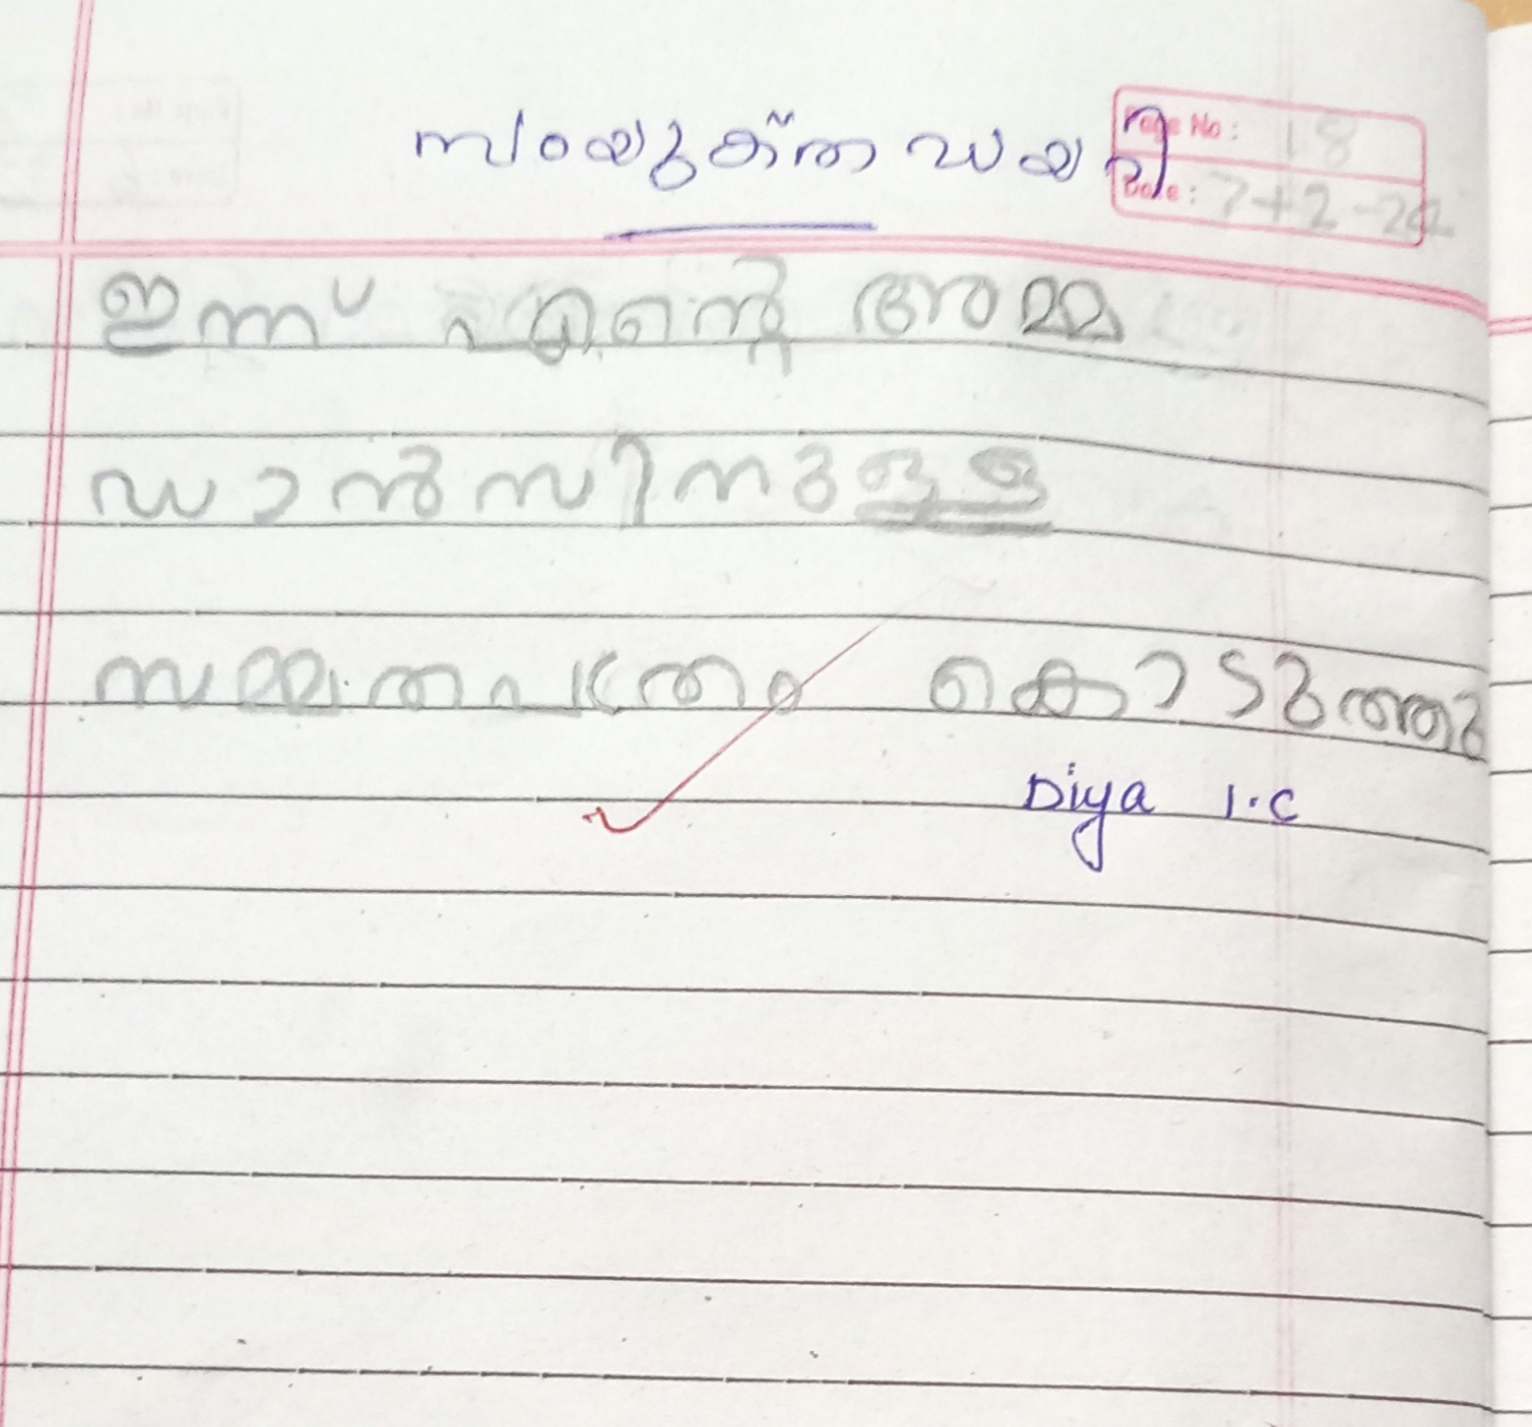 സംയുക്ത ഡയറി
Page No: 18
Date: 7-2-24
ഇന്ന് എന്റെ അമ്മ
ഡാൻസിനുള്ള
സമ്മതപത്രം കൊടുത്തു
Diya 1.C